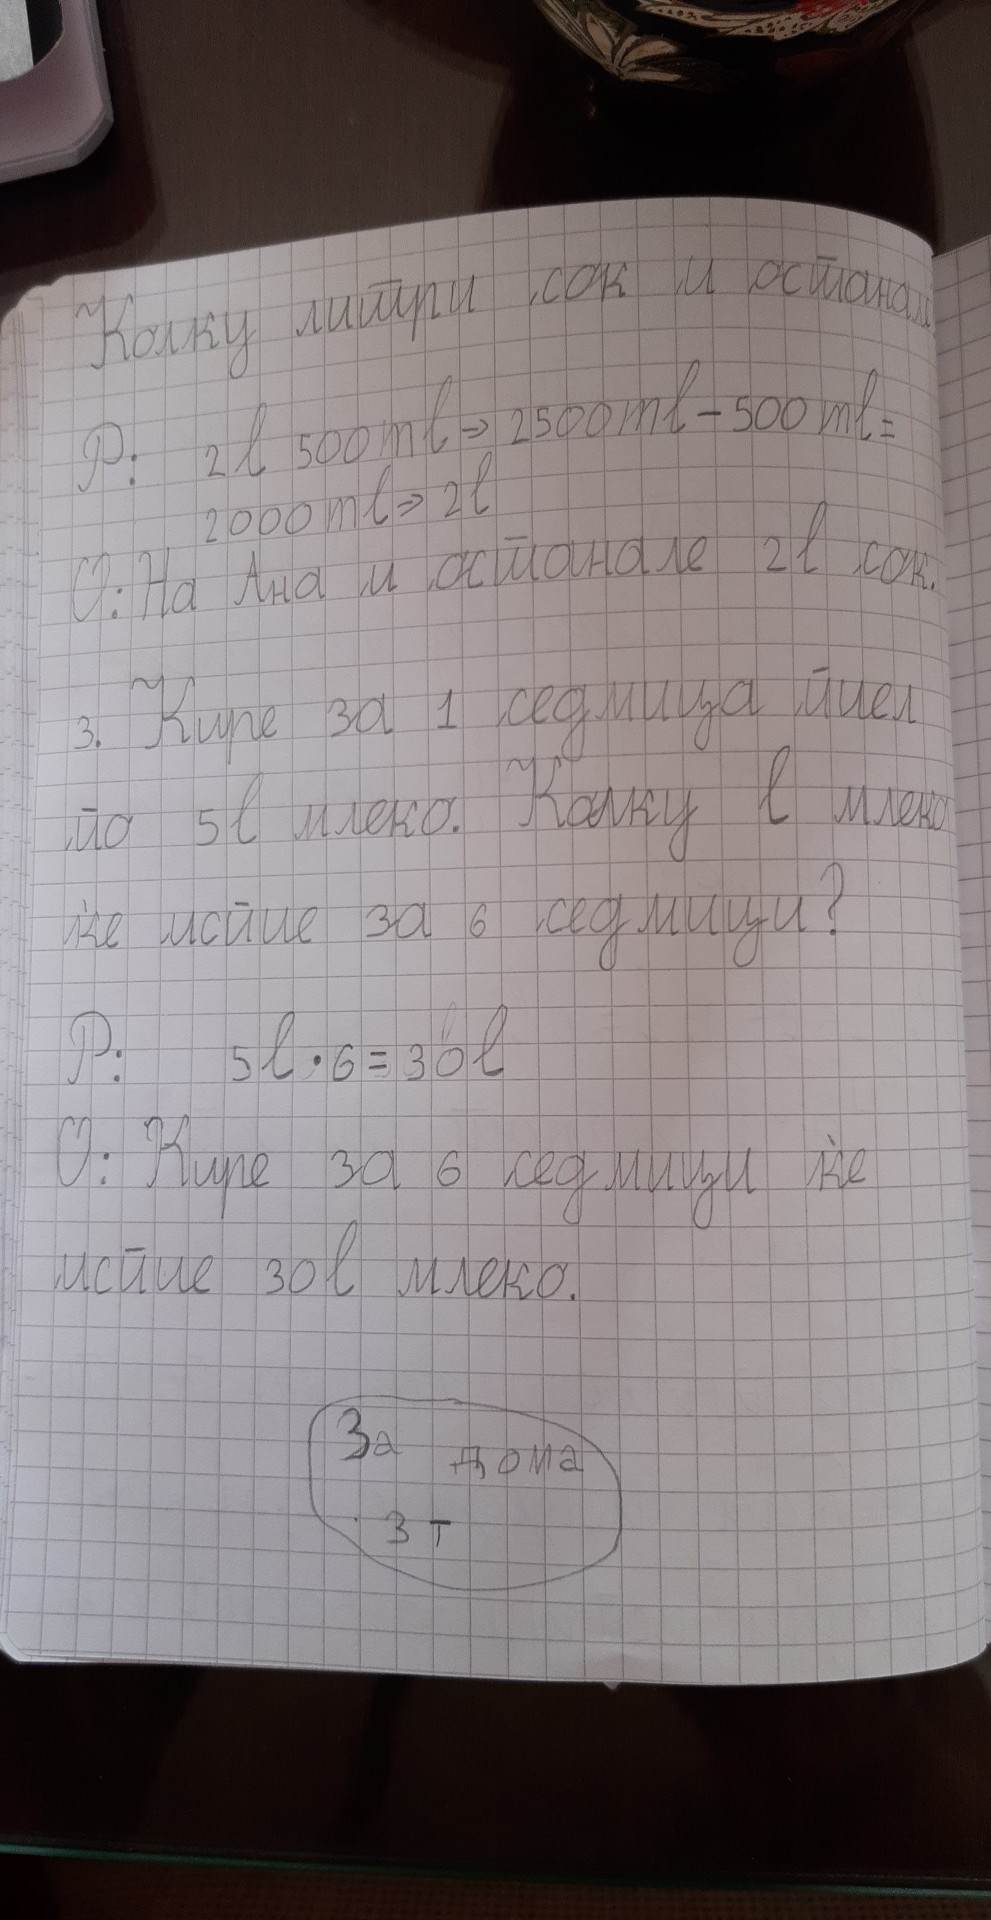 Колку литри сок и остана
Р: 2l 500ml ⇒ 2500ml - 500ml =
2000ml ⇒ 2l
О: На Ана и останале 2l сок.
3. Кире за 1 седмица пиел
по 5l млеко. Колку l млеко
ќе испие за 6 седмици?
Р: 5l · 6 = 30l
О: Кире за 6 седмици ќе
испие 30l млеко.
За дома
3 т